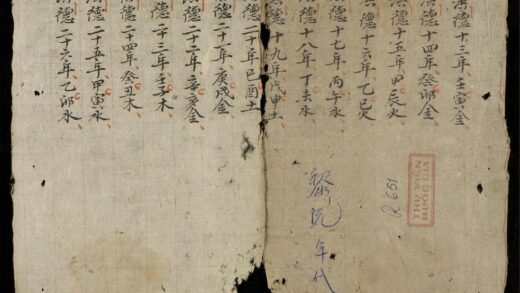 洪德十三年壬寅金
洪德十四年癸卯金
洪德十五年甲辰火
洪德十六年乙巳火
洪德十七年丙午水
洪德十八年丁未水
洪德十九年戊申土
洪德二十年己酉土
洪德二十一年庚戌金
洪德二十二年辛亥金
洪德二十三年壬子木
洪德二十四年癸丑木
洪德二十五年甲寅水
洪德二十六年乙卯水
THƯ VIỆN
QUỐC GIA
R 651
黎阮年代